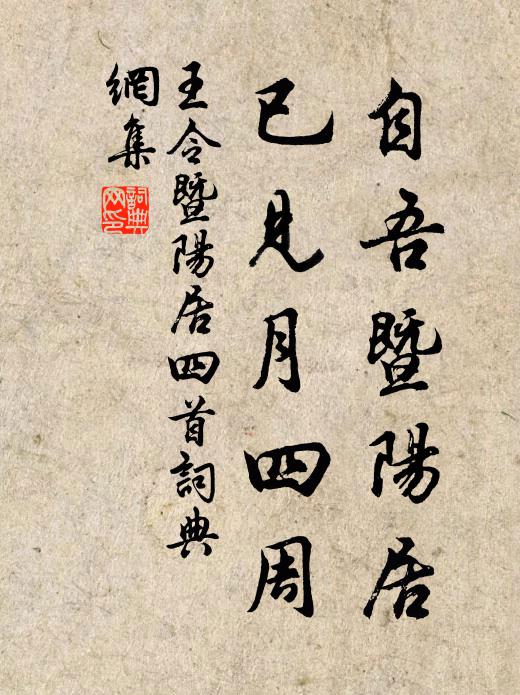 自吾暨陽居
已見月四周
王令暨陽居四首詞典
網集
詞典
网印